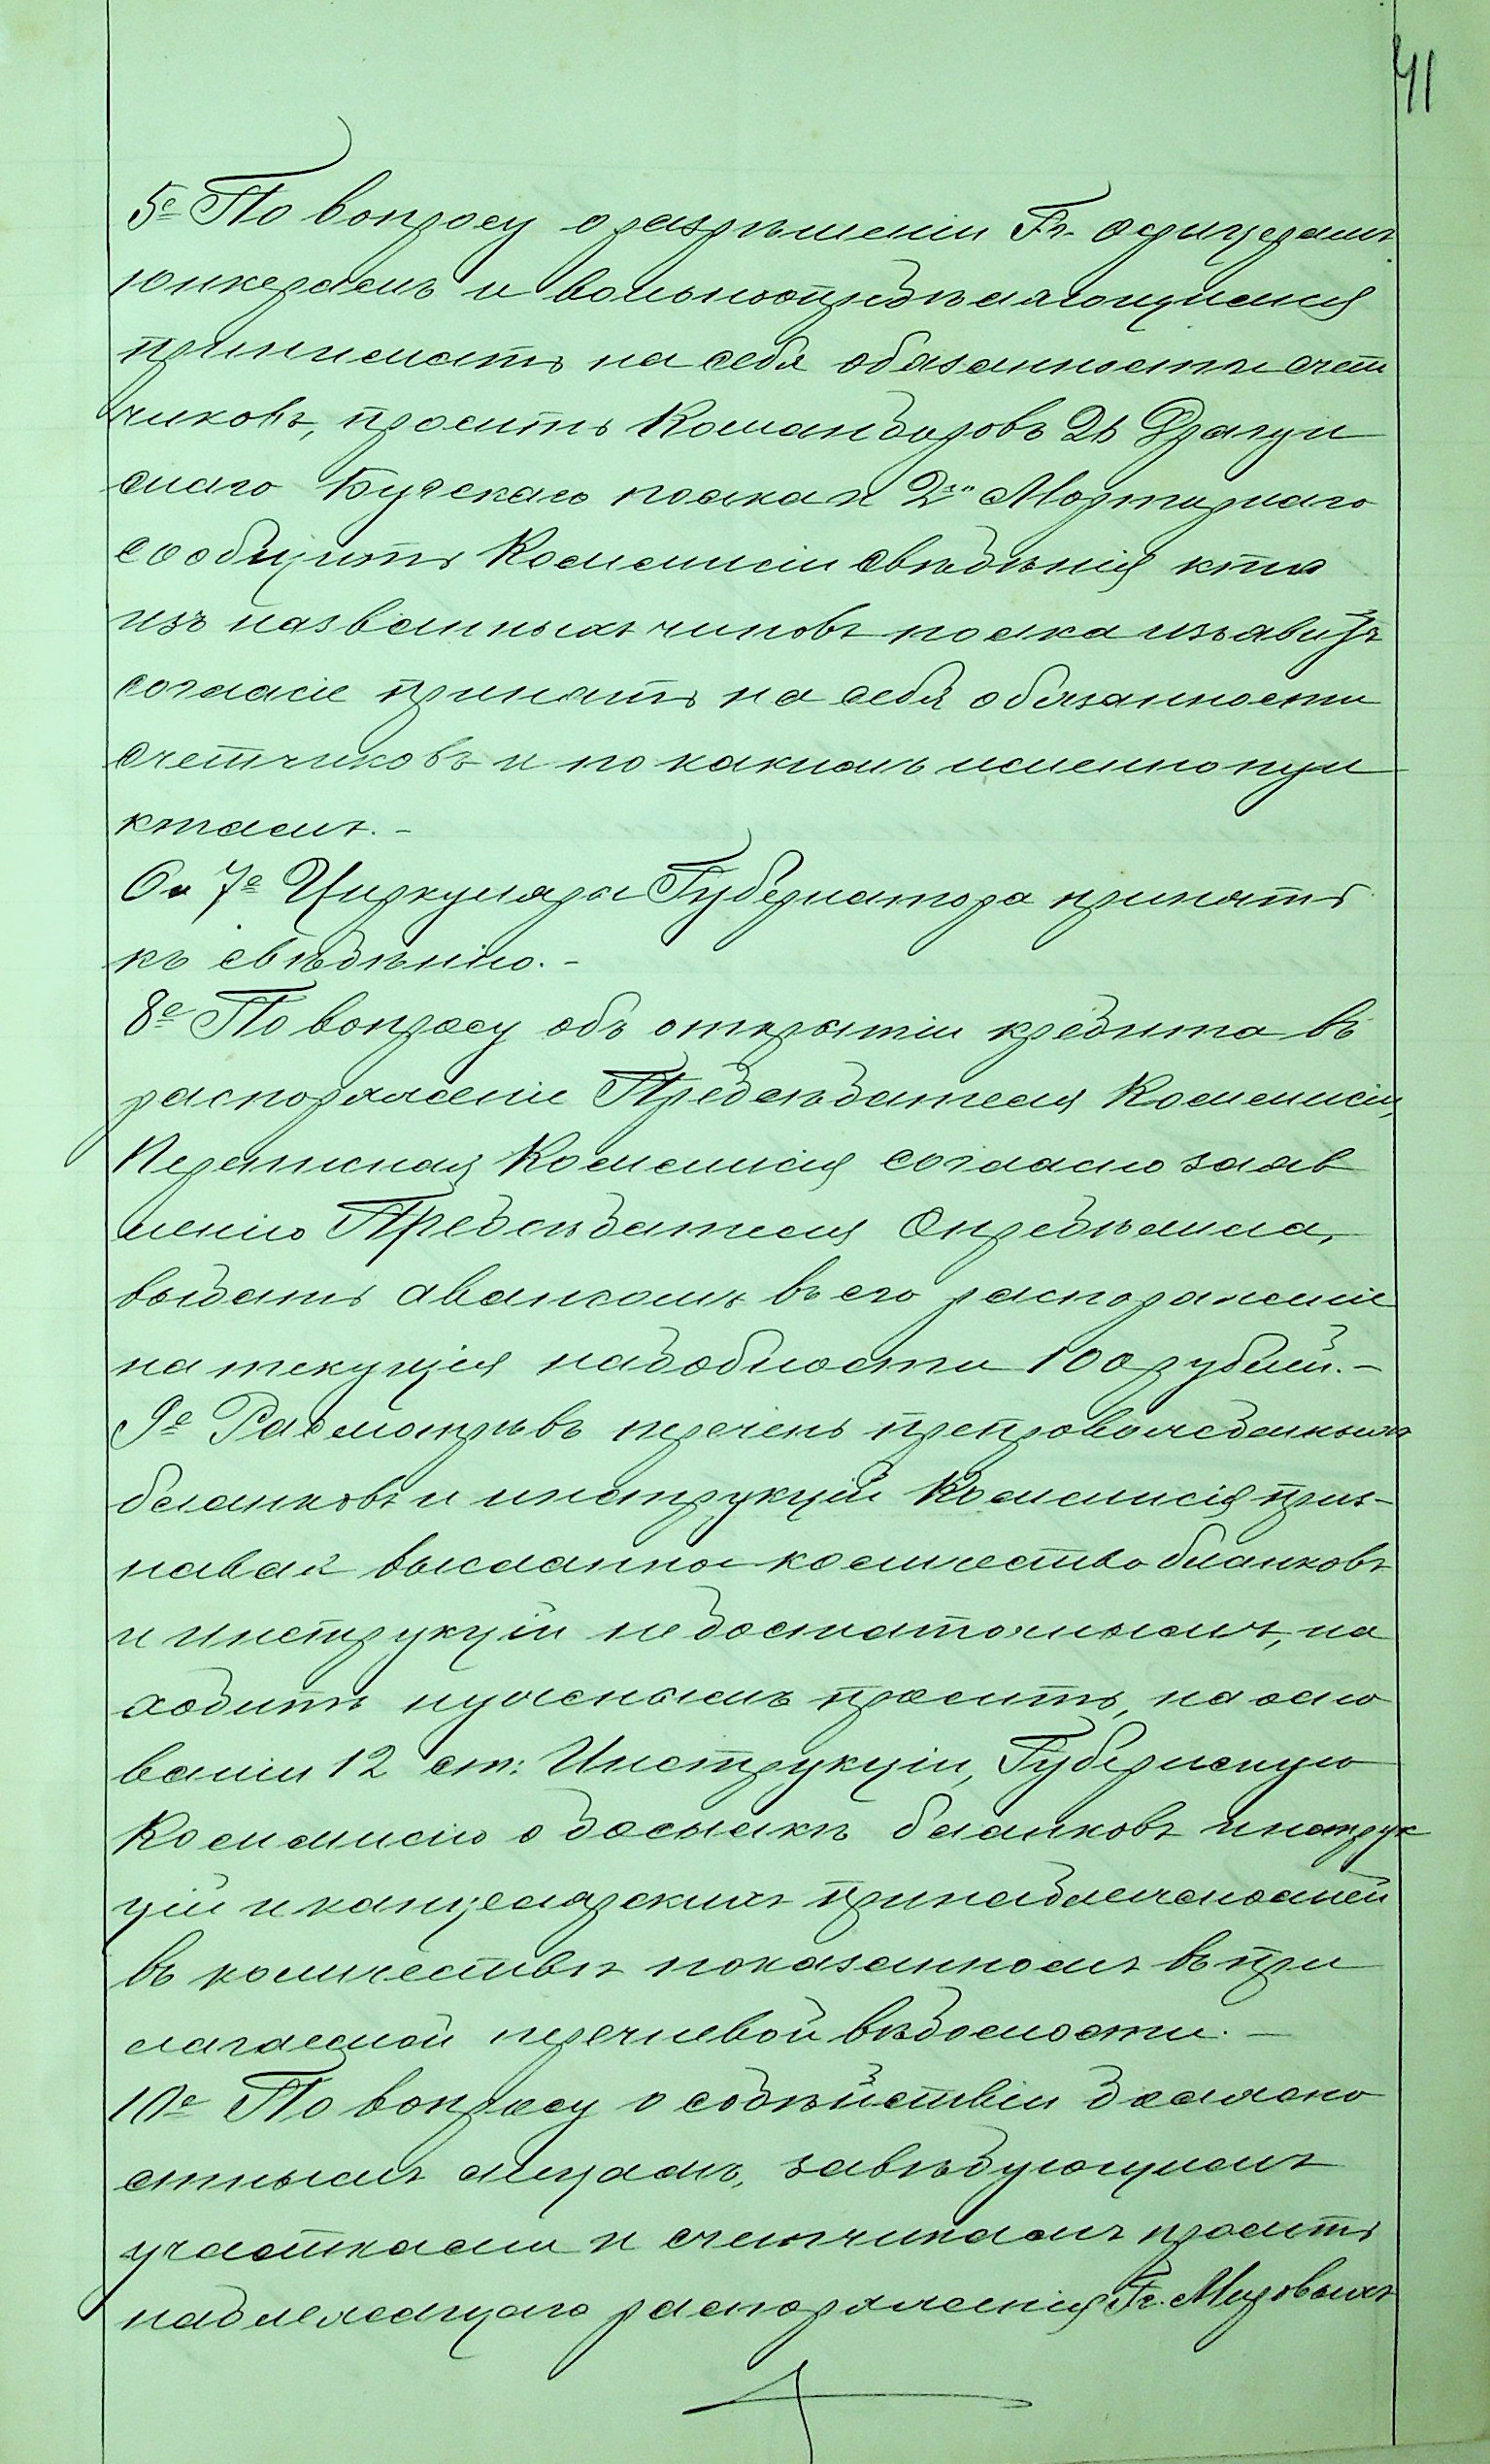 41
5е По вопросу о разрѣшеніи Гг. офицерамъ
юнкерамъ и вольноопредѣляющимся
принимать на себя обязанности счет
чиковъ, просить Командировъ 26 Драгун
скаго Бугскаго полка и 2го Мортирнаго
сообщить Коммисіи свѣдѣнія кто
изъ названныхъ чиновъ полка изъявитъ
согласіе принять на себя обязанности
счетчиковъ и по какимъ именно пун
ктамъ.-
6 и 7е Циркуляры Губернатора принять
къ свѣдѣнію.-
8е По вопросу объ открытіи кредита въ
распоряженіе Предсѣдателя Коммисіи,
Переписная Коммисія согласно заяв
ленію Предсѣдателя Опредѣлила,
выдать авансомъ въ его распоряженіе
на текущія надобности 100 рублей.-
9е Расмотрѣвъ перечень препровожденныхъ
бланковъ и инструкцій Коммисія приз-
навая высланное количество бланковъ
и инструкцій недостаточнымъ, на
ходитъ нужнымъ просить, на осно
ваніи 12 ст: Инструкціи, Губернскую
Коммисію о досылкѣ бланковъ инструк
цій и канцелярскихъ принадлежностей
въ количествѣ показанномъ въ при
лагаемой перечневой вѣдомости.-
10е По вопросу о содѣйствіи должно
стнымъ лицамъ, завѣдующимъ
участками и счетчикамъ просить
надлежащаго распоряженія Гг. Мировыхъ